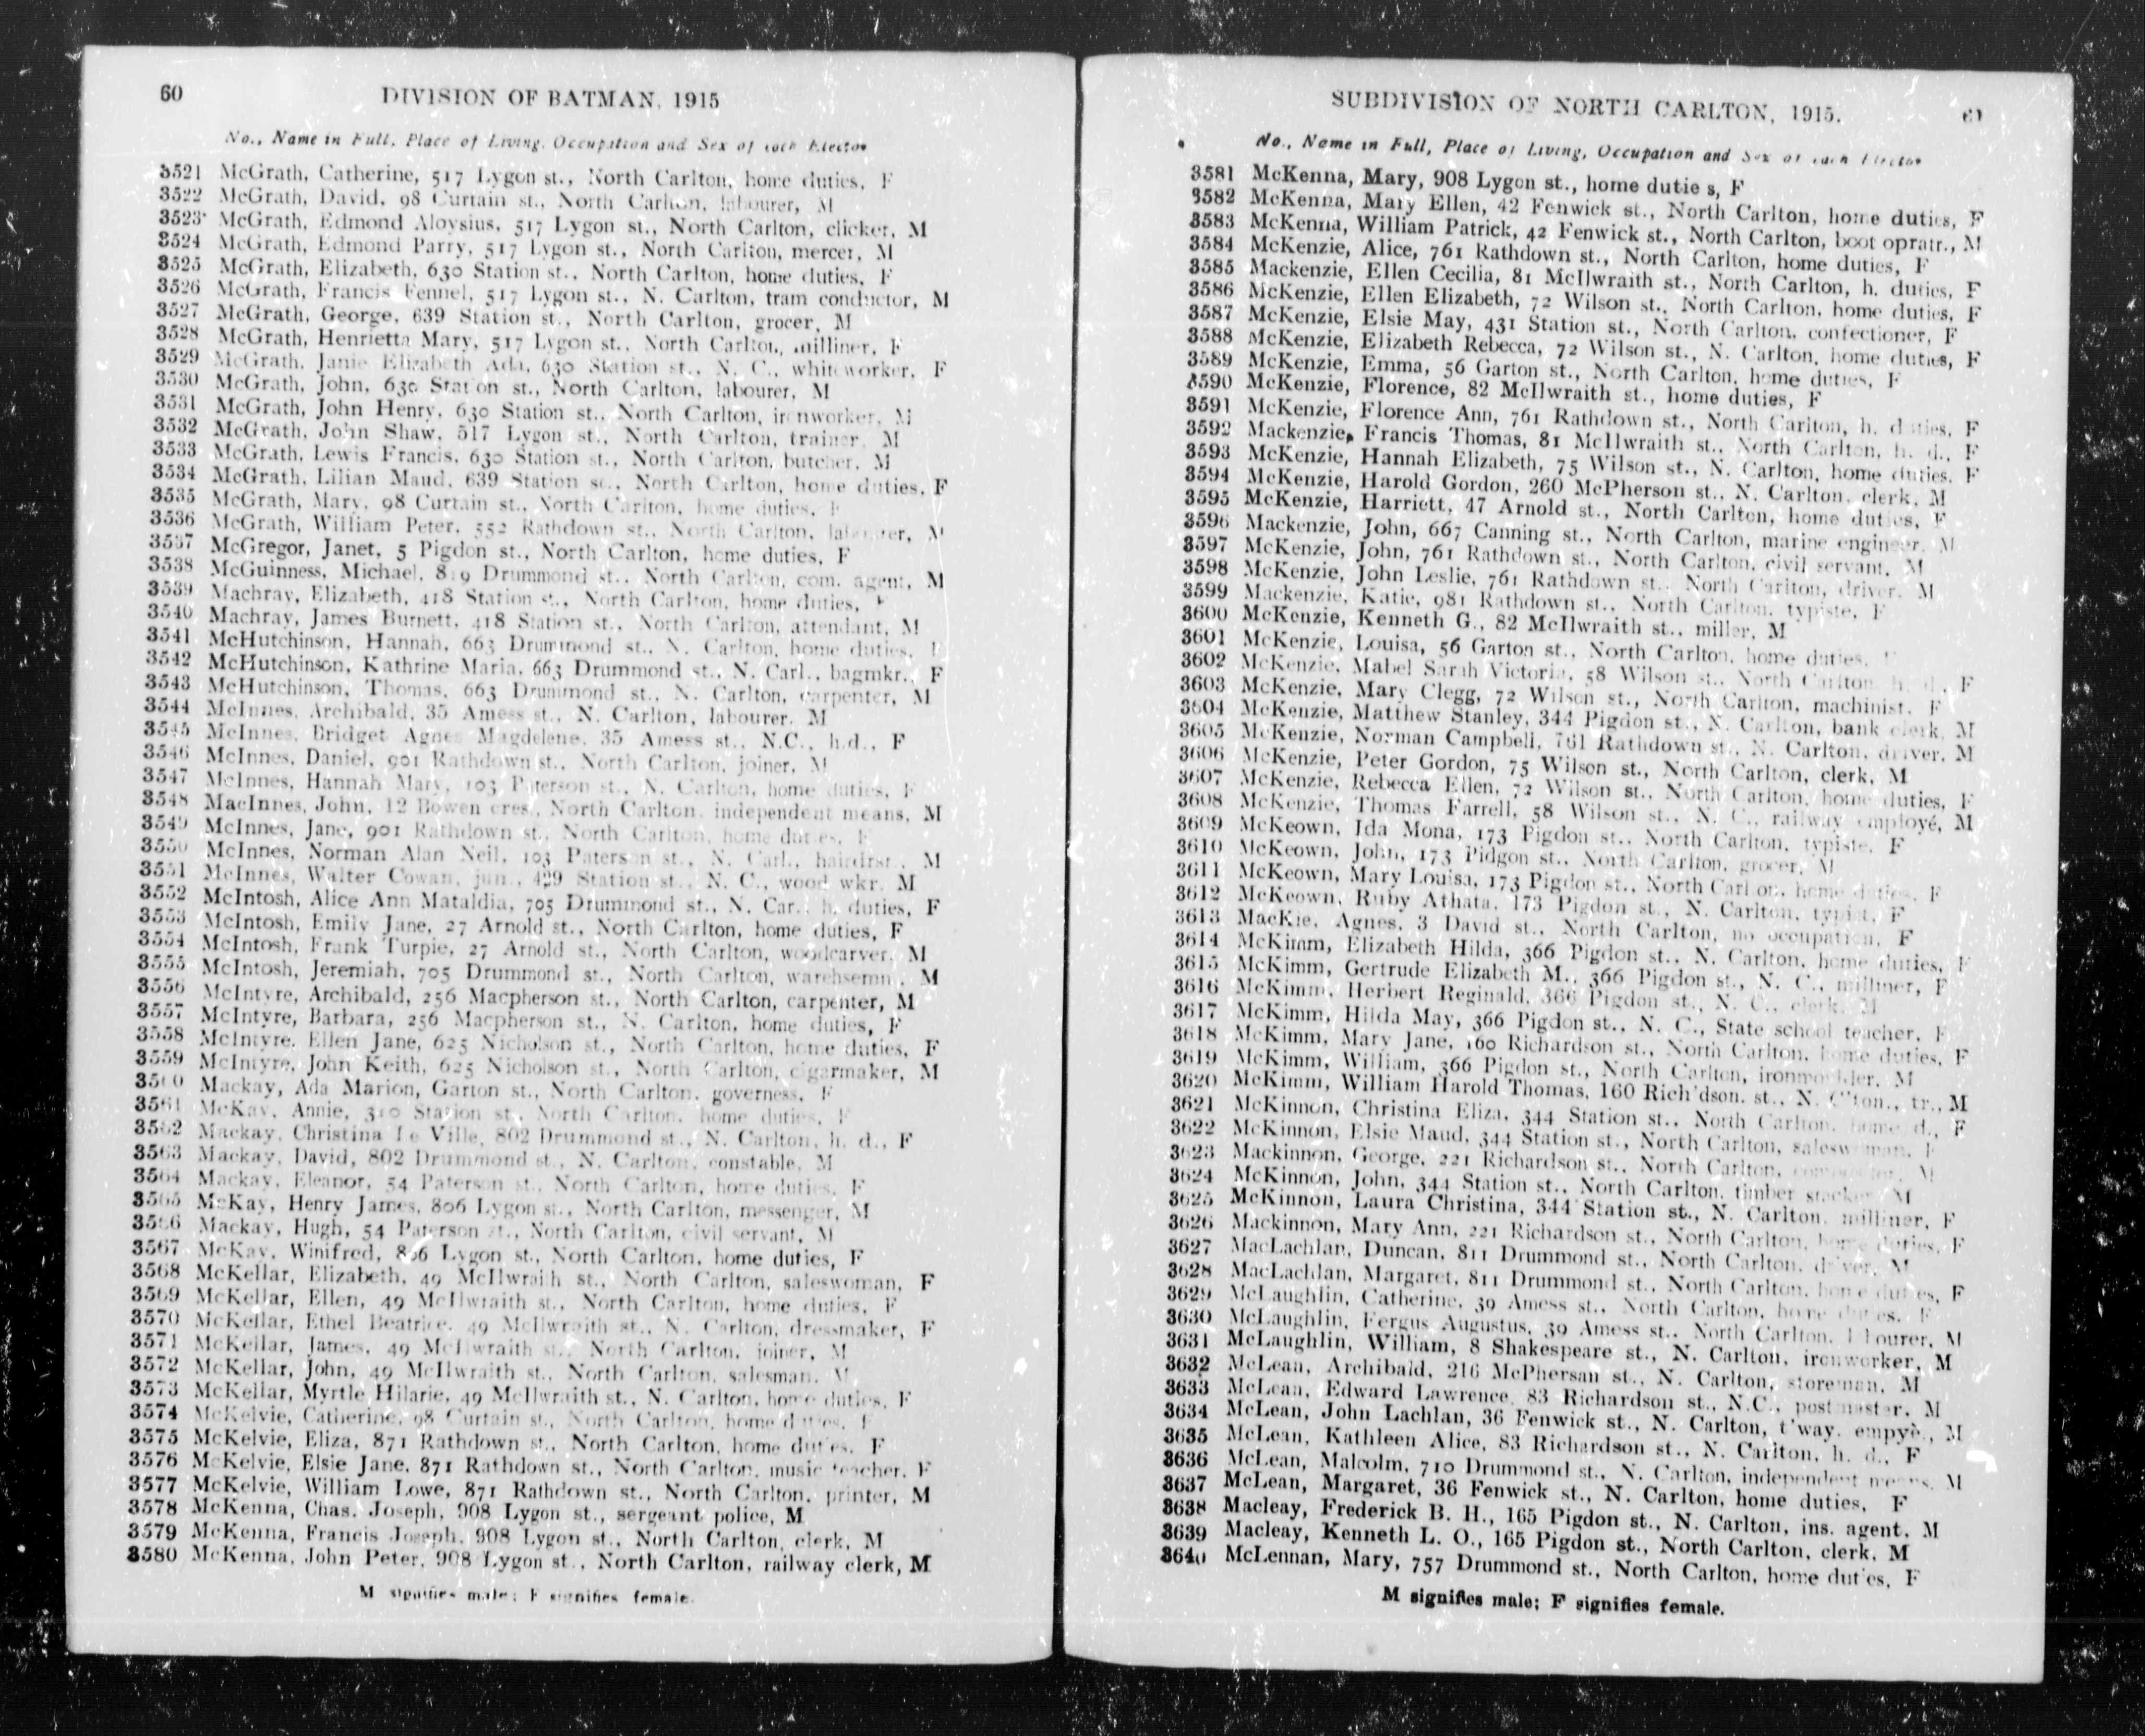 60
DIVISION OF BATMAN, 1915
No., Name in Full, Place of Living, Occupation and Sex of each Elector
3521 McGrath, Catherine, 517 Lygon st., North Carlton, home duties, F
3522 McGrath, David, 98 Curtain st., North Carlton, labourer, M
3523 McGrath, Edmond Aloysius, 517 Lygon st., North Carlton, clicker, M
3524 McGrath, Edmond Parry, 517 Lygon st., North Carlton, mercer, M
3525 McGrath, Elizabeth, 630 Station st., North Carlton, home duties, F
3526 McGrath, Francis Fennel, 517 Lygon st., N. Carlton, tram conductor, M
3527 McGrath, George, 639 Station st., North Carlton, grocer, M
3528 McGrath, Henrietta Mary, 517 Lygon st., North Carlton, milliner, F
3529 McGrath, Janie Elizabeth Ada, 630 Station st., N. C., whiteworker, F
3530 McGrath, John, 630 Station st., North Carlton, labourer, M
3531 McGrath, John Henry, 630 Station st., North Carlton, ironworker, M
3532 McGrath, John Shaw, 517 Lygon st., North Carlton, trainer, M
3533 McGrath, Lewis Francis, 630 Station st., North Carlton, butcher, M
3534 McGrath, Lilian Maud, 639 Station st., North Carlton, home duties, F
3535 McGrath, Mary, 98 Curtain st., North Carlton, home duties, F
3536 McGrath, William Peter, 552 Rathdown st., North Carlton, labourer, M
3537 McGregor, Janet, 5 Pigdon st., North Carlton, home duties, F
3538 McGuinness, Michael, 819 Drummond st., North Carlton, com. agent, M
3539 Machray, Elizabeth, 418 Station st., North Carlton, home duties, F
3540 Machray, James Burnett, 418 Station st., North Carlton, attendant, M
3541 McHutchinson, Hannah, 663 Drummond st., N. Carlton, home duties, F
3542 McHutchinson, Kathrine Maria, 663 Drummond st., N. Carl., bagmkr., F
3543 McHutchinson, Thomas, 663 Drummond st., N. Carlton, carpenter, M
3544 McInnes, Archibald, 35 Amess st., N. Carlton, labourer, M
3545 McInnes, Bridget Agnes Magdelene, 35 Amess st., N.C., h.d., F
3546 McInnes, Daniel, 901 Rathdown st., North Carlton, joiner, M
3547 McInnes, Hannah Mary, 103 Paterson st., N. Carlton, home duties, F
3548 MacInnes, John, 12 Bowen cres., North Carlton, independent means, M
3549 McInnes, Jane, 901 Rathdown st., North Carlton, home duties, F
3550 McInnes, Norman Alan Neil, 103 Paterson st., N. Carl., hairdrsr., M
3551 McInnes, Walter Cowan, jun., 429 Station st., N. C., wood wkr, M
3552 McIntosh, Alice Ann Mataldia, 705 Drummond st., N. Car., h. duties, F
3553 McIntosh, Emily Jane, 27 Arnold st., North Carlton, home duties, F
3554 McIntosh, Frank Turpie, 27 Arnold st., North Carlton, woodcarver, M
3555 McIntosh, Jeremiah, 705 Drummond st., North Carlton, warehsemn., M
3556 McIntyre, Archibald, 256 Macpherson st., North Carlton, carpenter, M
3557 McIntyre, Barbara, 256 Macpherson st., N. Carlton, home duties, F
3558 McIntyre, Ellen Jane, 625 Nicholson st., North Carlton, home duties, F
3559 McIntyre, John Keith, 625 Nicholson st., North Carlton, cigarmaker, M
3560 Mackay, Ada Marion, Garton st., North Carlton, governess, F
3561 McKay, Annie, 310 Station st., North Carlton, home duties, F
3562 Mackay, Christina Le Ville, 802 Drummond st., N. Carlton, h. d., F
3563 Mackay, David, 802 Drummond st., N. Carlton, constable, M
3564 Mackay, Eleanor, 54 Paterson st., North Carlton, home duties, F
3565 McKay, Henry James, 806 Lygon st., North Carlton, messenger, M
3566 Mackay, Hugh, 54 Paterson st., North Carlton, civil servant, M
3567 McKay, Winifred, 806 Lygon st., North Carlton, home duties, F
3568 McKellar, Elizabeth, 49 McIlwraith st., North Carlton, saleswoman, F
3569 McKellar, Ellen, 49 McIlwraith st., North Carlton, home duties, F
3570 McKellar, Ethel Beatrice, 49 McIlwraith st., N. Carlton, dressmaker, F
3571 McKellar, James, 49 McIlwraith st., North Carlton, joiner, M
3572 McKellar, John, 49 McIlwraith st., North Carlton, salesman, M
3573 McKellar, Myrtle Hilarie, 49 McIlwraith st., N. Carlton, home duties, F
3574 McKelvie, Catherine, 98 Curtain st., North Carlton, home duties, F
3575 McKelvie, Eliza, 871 Rathdown st., North Carlton, home duties, F
3576 McKelvie, Elsie Jane, 871 Rathdown st., North Carlton, music teacher, F
3577 McKelvie, William Lowe, 871 Rathdown st., North Carlton, printer, M
3578 McKenna, Chas. Joseph, 908 Lygon st., sergeant police, M
3579 McKenna, Francis Joseph, 908 Lygon st., North Carlton, clerk, M
3580 McKenna, John Peter, 908 Lygon st., North Carlton, railway clerk, M
M signifies male; F signifies female.
SUBDIVISION OF NORTH CARLTON, 1915.
61
No., Name in Full, Place of Living, Occupation and Sex of each Elector
3581 McKenna, Mary, 908 Lygon st., home duties, F
3582 McKenna, Mary Ellen, 42 Fenwick st., North Carlton, home duties, F
3583 McKenna, William Patrick, 42 Fenwick st., North Carlton, boot opratr., M
3584 McKenzie, Alice, 761 Rathdown st., North Carlton, home duties, F
3585 Mackenzie, Ellen Cecilia, 81 McIlwraith st., North Carlton, h. duties, F
3586 McKenzie, Ellen Elizabeth, 72 Wilson st., North Carlton, home duties, F
3587 McKenzie, Elsie May, 431 Station st., North Carlton, confectioner, F
3588 McKenzie, Elizabeth Rebecca, 72 Wilson st., N. Carlton, home duties, F
3589 McKenzie, Emma, 56 Garton st., North Carlton, home duties, F
3590 McKenzie, Florence, 82 McIlwraith st., home duties, F
3591 McKenzie, Florence Ann, 761 Rathdown st., North Carlton, h. duties, F
3592 Mackenzie, Francis Thomas, 81 McIlwraith st., North Carlton, h. d., F
3593 McKenzie, Hannah Elizabeth, 75 Wilson st., N. Carlton, home duties, F
3594 McKenzie, Harold Gordon, 260 McPherson st., N. Carlton, clerk, M
3595 McKenzie, Harriett, 47 Arnold st., North Carlton, home duties, F
3596 Mackenzie, John, 667 Canning st., North Carlton, marine engineer, M
3597 McKenzie, John, 761 Rathdown st., North Carlton, civil servant, M
3598 McKenzie, John Leslie, 761 Rathdown st., North Carlton, driver, M
3599 Mackenzie, Katie, 981 Rathdown st., North Carlton, typiste, F
3600 McKenzie, Kenneth G., 82 McIlwraith st., miller, M
3601 McKenzie, Louisa, 56 Garton st., North Carlton, home duties, F
3602 McKenzie, Mabel Sarah Victoria, 58 Wilson st., North Carlton, h. d., F
3603 McKenzie, Mary Clegg, 72 Wilson st., North Carlton, machinist, F
3604 McKenzie, Matthew Stanley, 344 Pigdon st., N. Carlton, bank clerk, M
3605 McKenzie, Norman Campbell, 761 Rathdown st., N. Carlton, driver, M
3606 McKenzie, Peter Gordon, 75 Wilson st., North Carlton, clerk, M
3607 McKenzie, Rebecca Ellen, 72 Wilson st., North Carlton, home duties, F
3608 McKenzie, Thomas Farrell, 58 Wilson st., N. C., railway employé, M
3609 McKeown, Ida Mona, 173 Pigdon st., North Carlton, typiste, F
3610 McKeown, John, 173 Pidgon st., North Carlton, grocer, M
3611 McKeown, Mary Louisa, 173 Pigdon st., North Carlton, home duties, F
3612 McKeown, Ruby Athata, 173 Pigdon st., N. Carlton, typist, F
3613 MacKie, Agnes, 3 David st., North Carlton, no occupation, F
3614 McKimm, Elizabeth Hilda, 366 Pigdon st., N. Carlton, home duties, F
3615 McKimm, Gertrude Elizabeth M., 366 Pigdon st., N. C., milliner, F
3616 McKimm, Herbert Reginald, 366 Pigdon st., N. C., clerk, M
3617 McKimm, Hilda May, 366 Pigdon st., N. C., State school teacher, F
3618 McKimm, Mary Jane, 160 Richardson st., North Carlton, home duties, F
3619 McKimm, William, 366 Pigdon st., North Carlton, ironmoulder, M
3620 McKimm, William Harold Thomas, 160 Rich'dson. st., N. C'ton., tr., M
3621 McKinnon, Christina Eliza, 344 Station st., North Carlton, home d., F
3622 McKinnon, Elsie Maud, 344 Station st., North Carlton, saleswoman, F
3623 Mackinnon, George, 221 Richardson st., North Carlton, compositor, M
3624 McKinnon, John, 344 Station st., North Carlton, timber stacker, M
3625 McKinnon, Laura Christina, 344 Station st., N. Carlton, milliner, F
3626 Mackinnon, Mary Ann, 221 Richardson st., North Carlton, home duties, F
3627 MacLachlan, Duncan, 811 Drummond st., North Carlton, driver, M
3628 MacLachlan, Margaret, 811 Drummond st., North Carlton, home duties, F
3629 McLaughlin, Catherine, 39 Amess st., North Carlton, home duties, F
3630 McLaughlin, Fergus Augustus, 39 Amess st., North Carlton, labourer, M
3631 McLaughlin, William, 8 Shakespeare st., N. Carlton, ironworker, M
3632 McLean, Archibald, 216 McPhersan st., N. Carlton, storeman, M
3633 McLean, Edward Lawrence, 83 Richardson st., N.C., postmaster, M
3634 McLean, John Lachlan, 36 Fenwick st., N. Carlton, t'way. empyè., M
3635 McLean, Kathleen Alice, 83 Richardson st., N. Carlton, h. d., F
3636 McLean, Malcolm, 710 Drummond st., N. Carlton, independent means, M
3637 McLean, Margaret, 36 Fenwick st., N. Carlton, home duties, F
3638 Macleay, Frederick B. H., 165 Pigdon st., N. Carlton, ins. agent, M
3639 Macleay, Kenneth L. O., 165 Pigdon st., North Carlton, clerk, M
3640 McLennan, Mary, 757 Drummond st., North Carlton, home duties, F
M signifies male; F signifies female.